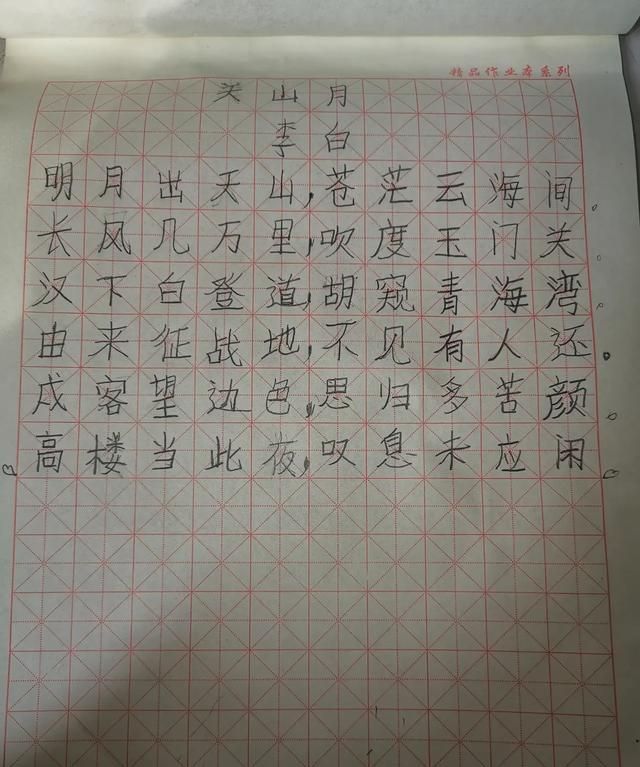 精品作业本系列
关山月
李白
明月出天山,苍茫云海间。
长风几万里,吹度玉门关。
汉下白登道,胡窥青海湾。
由来征战地,不见有人还。
戍客望边色,思归多苦颜。
高楼当此夜,叹息未应闲。